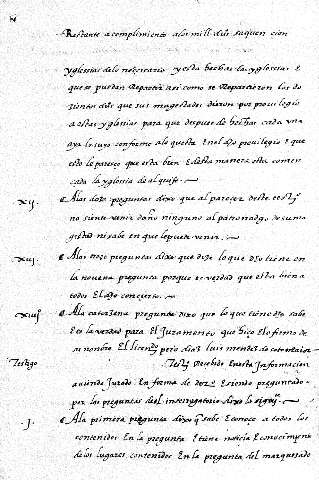 Restante a complimiento a los mill dus saquen con
yglesias de lo necesario y esta hechas las yglesias
que se puedan Repartir asi como se Repartieron los do
zientos dus que sus magestades dieron por previlegio
a estas yglesias para que despues de hechas cada una
aya lo suyo conforme a lo questa En el dho previlegio e que
esto le paresce que esta bien E desta manera esta comen
cada la yglesia de alquife
xij. A las doze preguntas dixo que al parescer deste testigo
no siente venir daño ninguno al patronadgo de su ma
gestad ni sabe en que le puede venir
xiij A las treze preguntas dixo que dize lo que dho tiene en
la novena pregunta porque es verdad que esta bien a
todos El dho concierto
xiiij A la catorzena pregunta dixo que lo que tiene dho sabe
Es la verdad para El Juramento que hizo E lo firmo de
su nombre El licendo pero diaz luis mendez de sotomaior
Testigo Tesigo Recebido En esta Informacion
aviendo Jurado En forma de derº E siendo preguntado
por las preguntas del interrogatorio dixo lo siguiº
.j. A la primera pregunta dixo que sabe E conoce a todos los
contenidos En la pregunta E tiene noticia E conoscimyento
de los lugares contenidos En la pregunta del marquesado